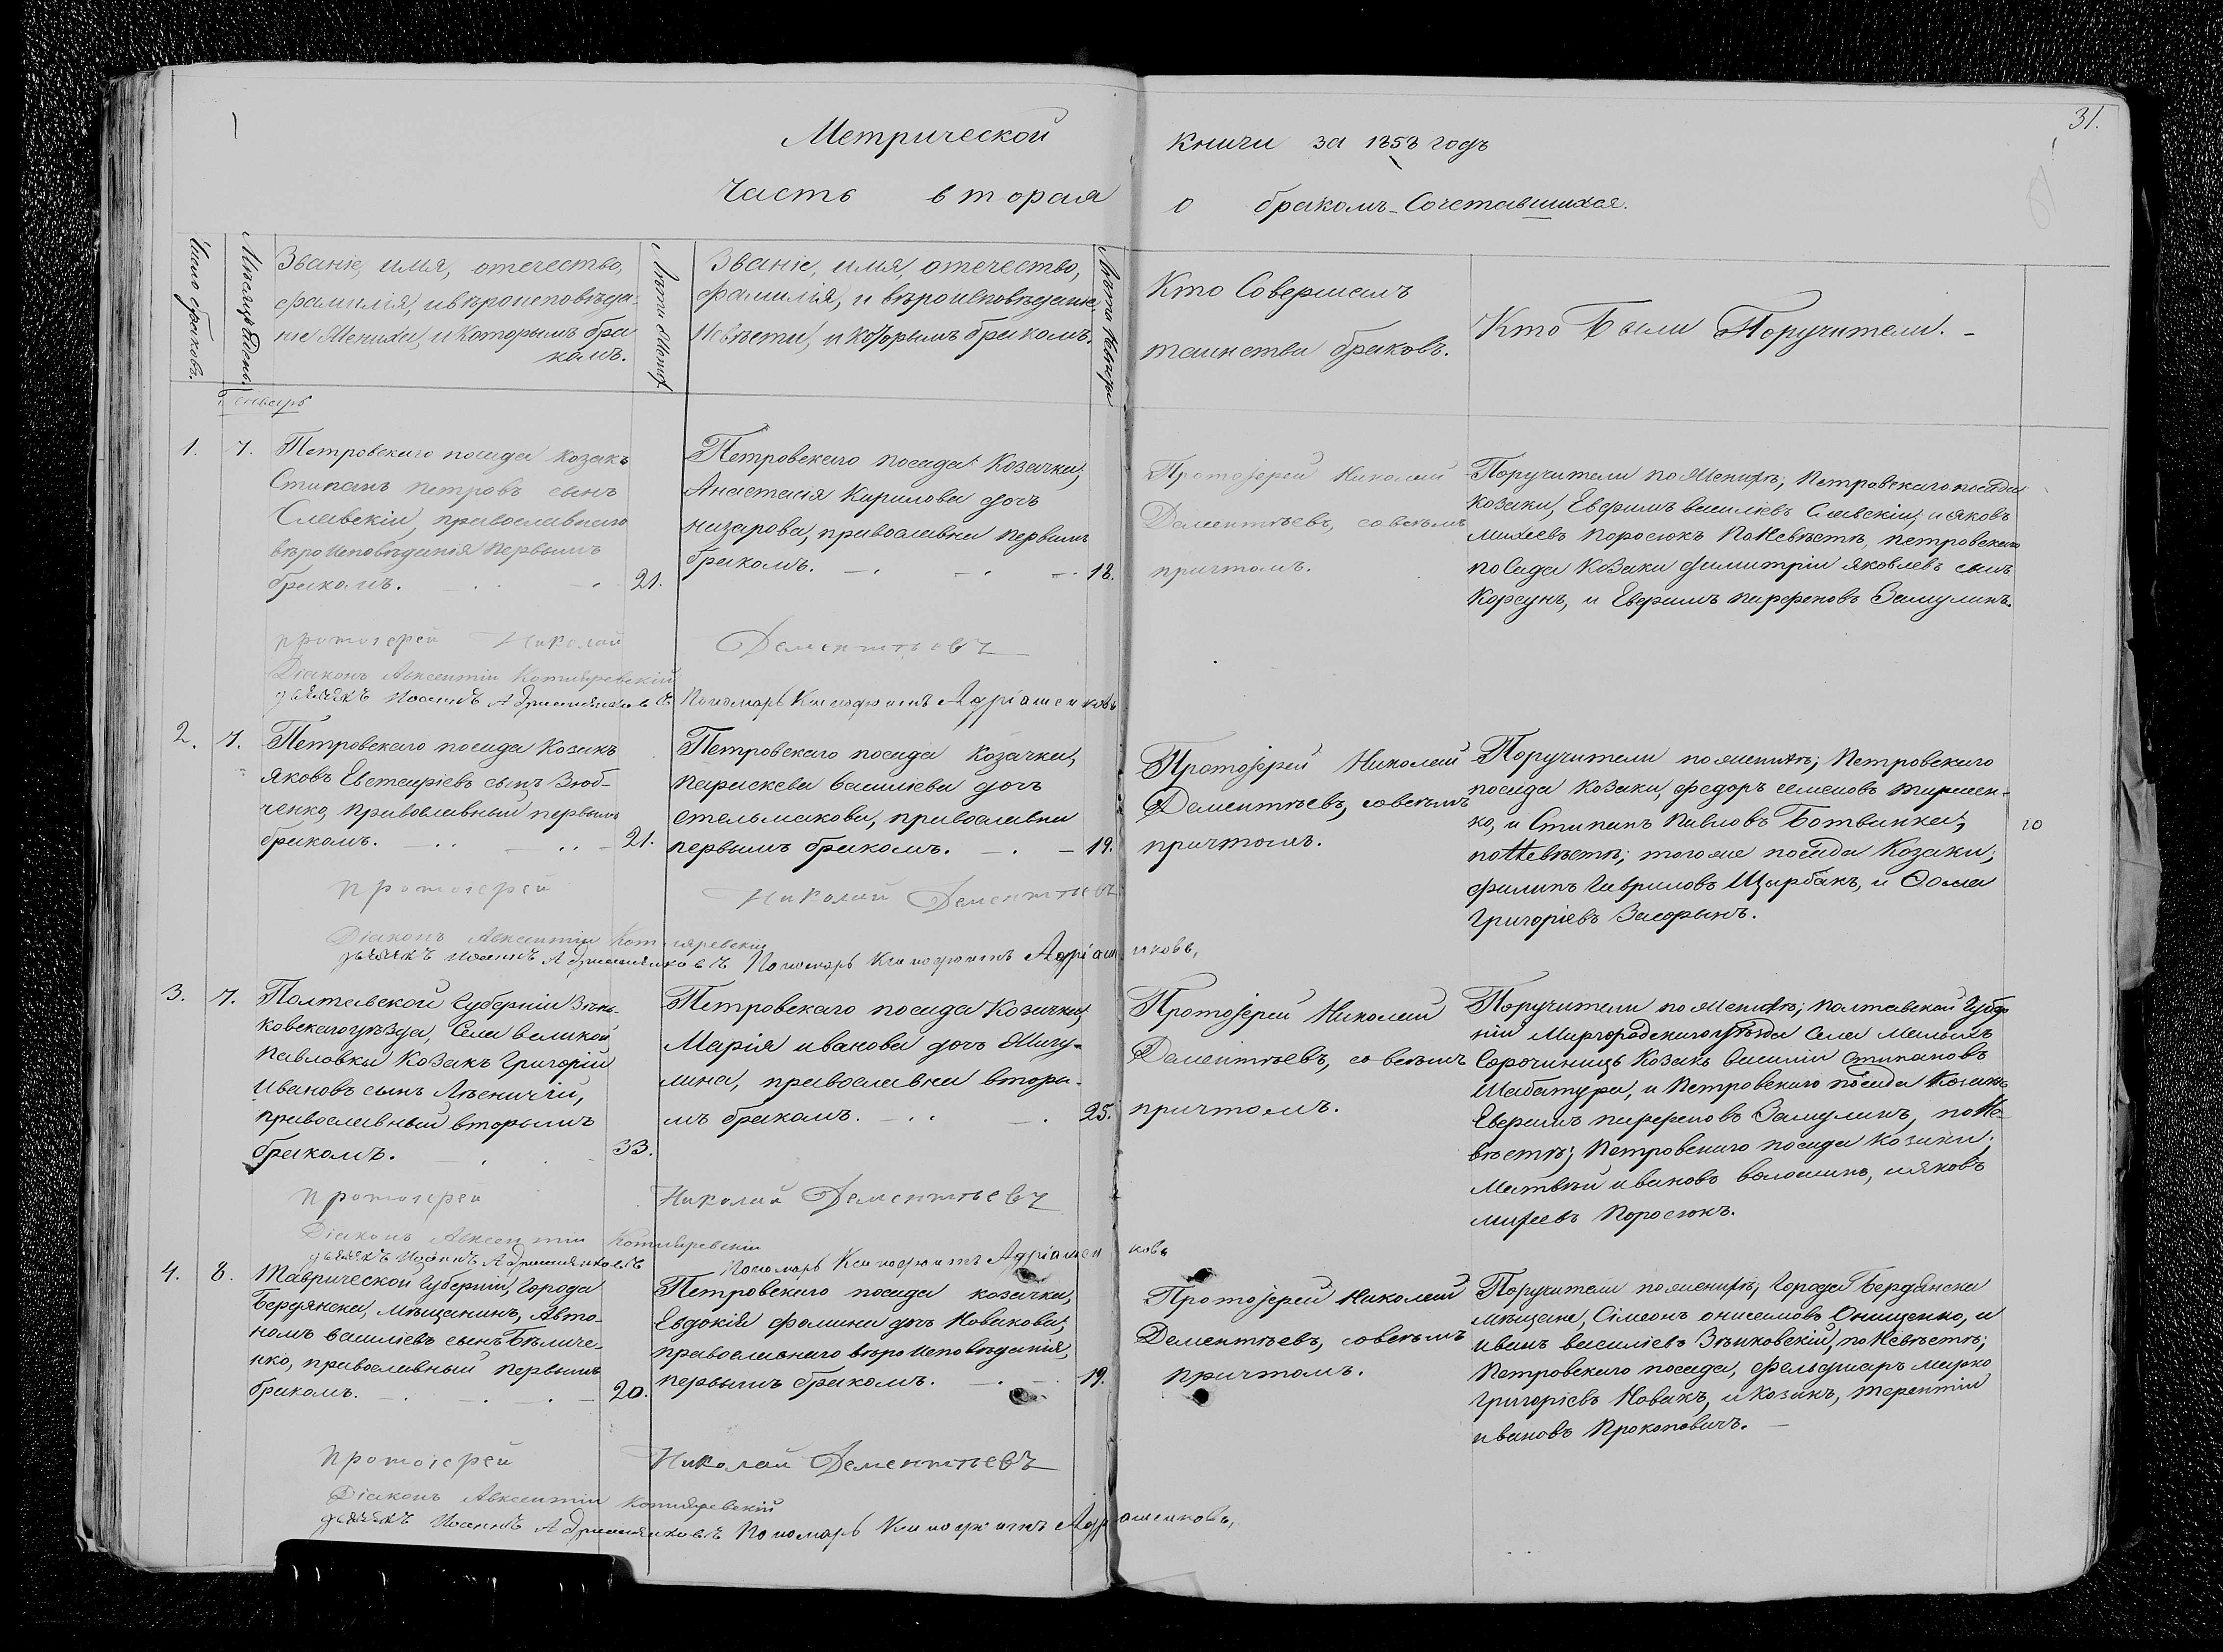 31.
Метрической книги за 1858 годъ
Часть вторая о бракомъ Сочетавшихся.
Число браковъ.
Мѣсяцъ и день.
Званіе, имя, отечество,
фамилія, и вѣроисповѣда-
ніе Жениха, и Которымъ бра
комъ.
Лѣта Жених.
Званіе, имя, отечество,
фамилія, и вѣроисповѣданіе
Невѣсти, и которымъ бракомъ.
Лѣта Невѣсти
Кто Совершалъ
таинства браковъ.
Кто Были Поручители. -
Генваръ
1. 7. Петровскаго посада козакъ
Стипанъ петровъ сынъ
Славскій, православнаго
вѣроисповѣданія первымъ
бракомъ. 21.
Петровскаго посада Козачка,
Анастасія Кирилова дочъ
назарова, православна первымъ
бракомъ. 18.
Протоіерей Николай
Дементѣевъ, совсѣмъ
причтомъ.
Поручители по Женихѣ; петровскаго посада
козаки, Евфимъ василіевъ Славскій, и яковъ
михеевъ поросюкъ По Невѣстѣ, петровскаго
посада Козаки димитрій яковлевъ сынъ
Корсунъ, и Евфимъ парфеновъ Замулинъ.
протоіерей Николай Дементѣевъ
Діаконъ Авксентій Котляревскій
дьячекъ Иоаннъ Адриашенковъ Пономарь Ксенофонтъ Адріашенковъ
2. 7. Петровскаго посада Козакъ
яковъ Евстафіевъ сынъ Зюб-
ченко, православный первымъ
бракомъ. 21.
Петровскаго посада козачка,
параскева василіева дочъ
стельмахова, православна
первымъ бракомъ. 19.
Протоіерей Николай
Дементѣевъ, совсѣмъ
причтомъ.
Поручители по женихѣ; петровскаго
посада козаки, федоръ семеновъ
ко, и Стипанъ павловъ Ботвинка,
по Невѣстѣ; того же посада Козаки;
филипъ гавриловъ Щырбакъ, и Фома
григоріевъ
10
протоіерей Николай Дементѣевъ
Діаконъ Авксентій Котляревскій
дьячекъ Иоаннъ Адриашенковъ Пономарь Ксенофонтъ Адріашенковъ,
3. 7. Полтавской губерніи Зѣнь-
ковскаго уѣзда, Села великой
павловки Козакъ григорій
ивановъ сынъ Лѣсничій,
православный вторымъ
бракомъ. 33.
Петровскаго посада Козачка,
Марія иванова дочъ
лина, православна вторы-
мъ бракомъ. 25.
Протоіерей Николай
Дементѣевъ, со всѣмъ
причтомъ.
Поручители по Женихѣ; полтавской губер
ніи Миргородскаго уѣзда Села Малыхъ
Сорочинецъ Козакъ василій стипановъ
Шабатура, и петровскаго посада Козакъ
Евфимъ парфеновъ Замулинъ, по Не-
вѣстѣ; петровскаго посада козаки;
Матвѣй ивановъ волошинъ, и яковъ
михеевъ поросюкъ.
протоіерей Николай Дементѣевъ
Діаконъ Авксентій Котляревскій
дьячекъ Иоаннъ Адриашенковъ Пономарь Ксенофонтъ Адріашенковъ
4. 8. Таврической губерніи, города
Бердянска, мѣщанинъ, Авто-
номъ василіевъ сынъ Бѣличе-
нко, православный первымъ
бракомъ. 20.
Петровскаго посада козачка,
Евдокія фомина дочъ Новакова,
православнаго вѣроисповѣданія,
первымъ бракомъ. 19.
Протоіерей Николай
Дементѣевъ, совсѣмъ
причтомъ.
Поручители по женихѣ; города Бердянска
мѣщане, Сімеонъ онисимовъ Онищенко, и
иванъ василіевъ Зѣнковскій, по Невѣстѣ;
петровскаго посада, фельдшаръ марко
григоріевъ Новакъ, и козакъ, терентій
ивановъ прокоповичъ.
протоіерей Николай Дементѣевъ
Діаконъ Авксентій Котляревскій
дьячекъ Иоаннъ Адриашенковъ Пономарь Ксенофонтъ Адріашенковъ,